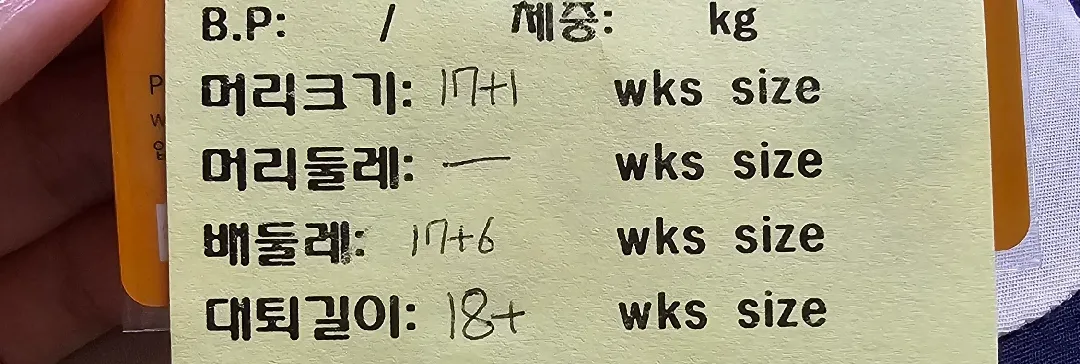 B.P: / 체중: kg
머리크기: 17+1 wks size
머리둘레: — wks size
배둘레: 17+6 wks size
대퇴길이: 18+ wks size